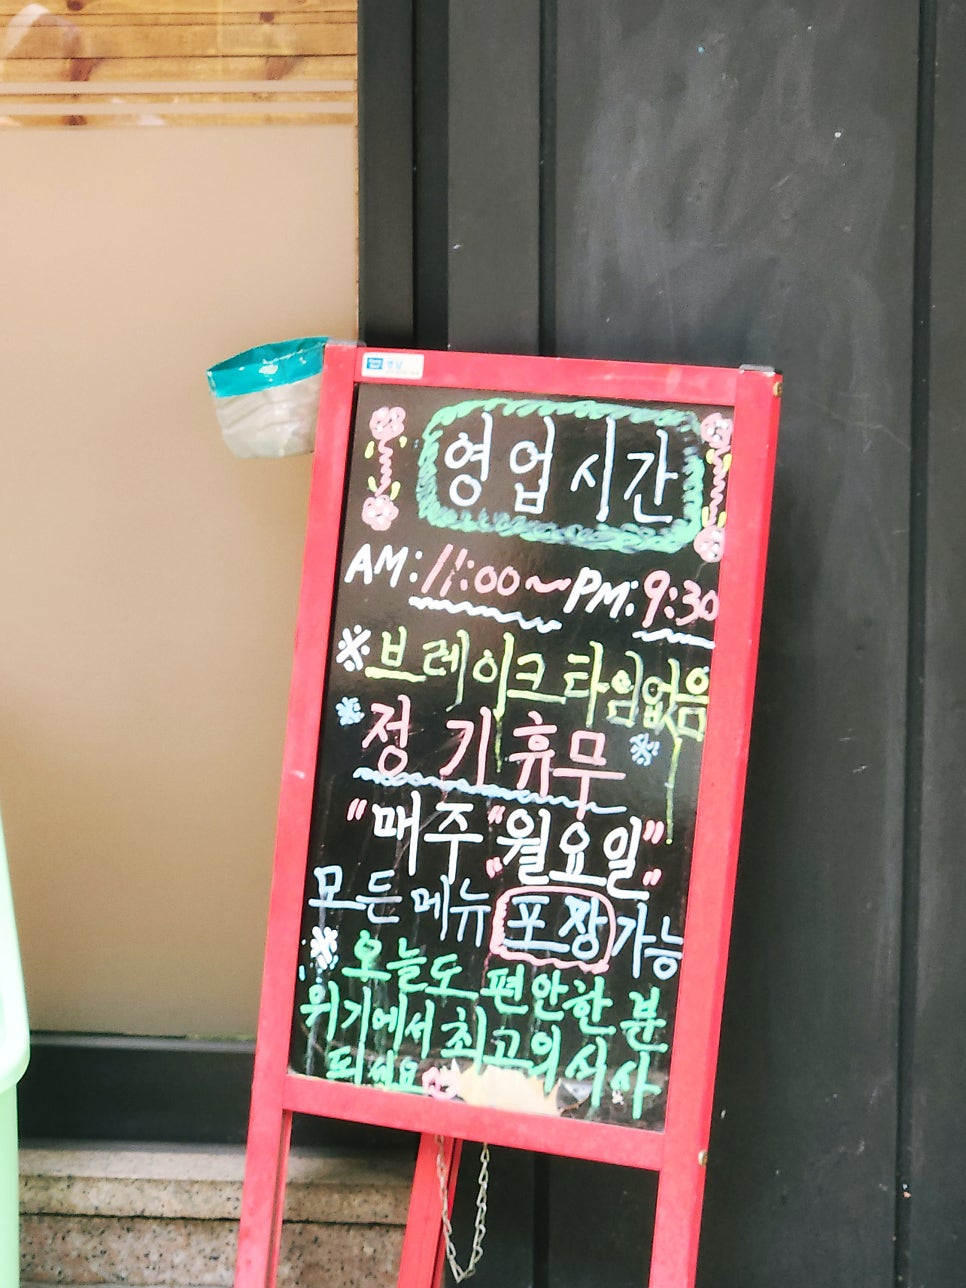 영업시간
AM: 11:00 ~ PM: 9:30
※브레이크타임없음
※정기휴무※
"매주 "월요일"
모든메뉴 포장가능
※오늘도 편안한 분
위기에서 최고의 식사
되세요